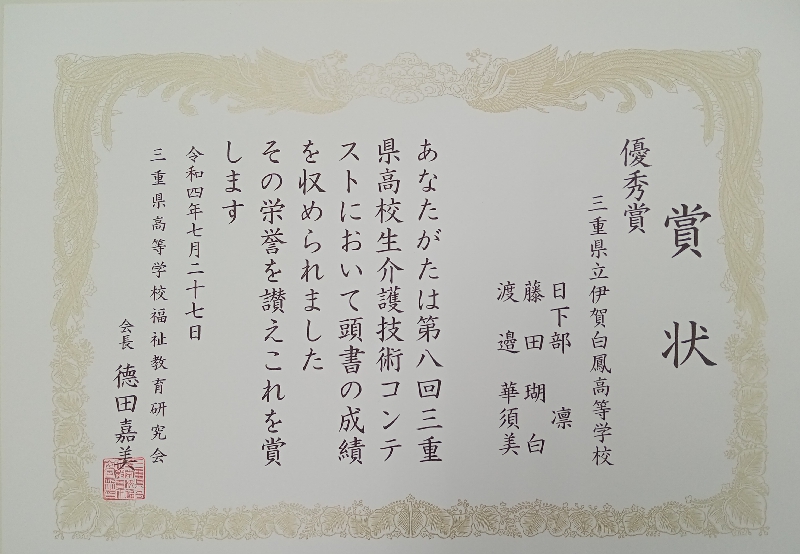 賞状
優秀賞
三重県立伊賀白鳳高等学校
日下部 凛
藤田 瑚白
渡邉 華須美
あなたがたは第八回三重
県高校生介護技術コンテ
ストにおいて頭書の成績
を収められました
その栄誉を讃えこれを賞
します
令和四年七月二十七日
三重県高等学校福祉教育研究会
会長 德田嘉美